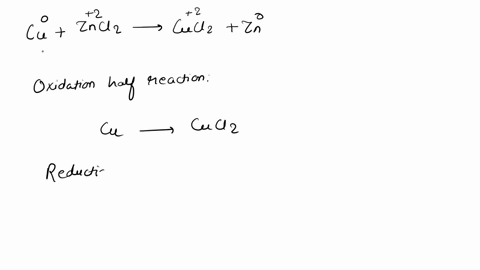 Cu⁰ + ZnCl₂ (+2) ⟶ CuCl₂ (+2) + Zn⁰
Oxidation half reaction:
Cu ⟶ CuCl₂
Reducti